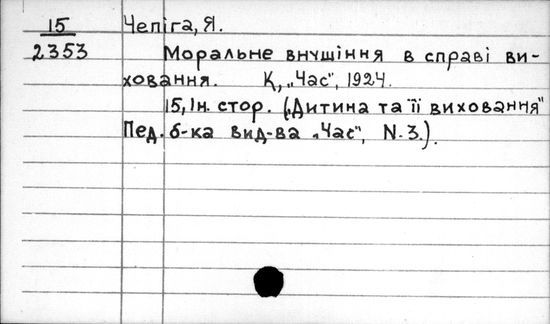 15 Чепіга, Я.
2353 Моральне внушіння в справі ви-
ховання. К, „Час", 1924.
15, Iн. стор. („Дитина та її виховання"
Пед. б-ка вид-ва „Час", N. 3.).